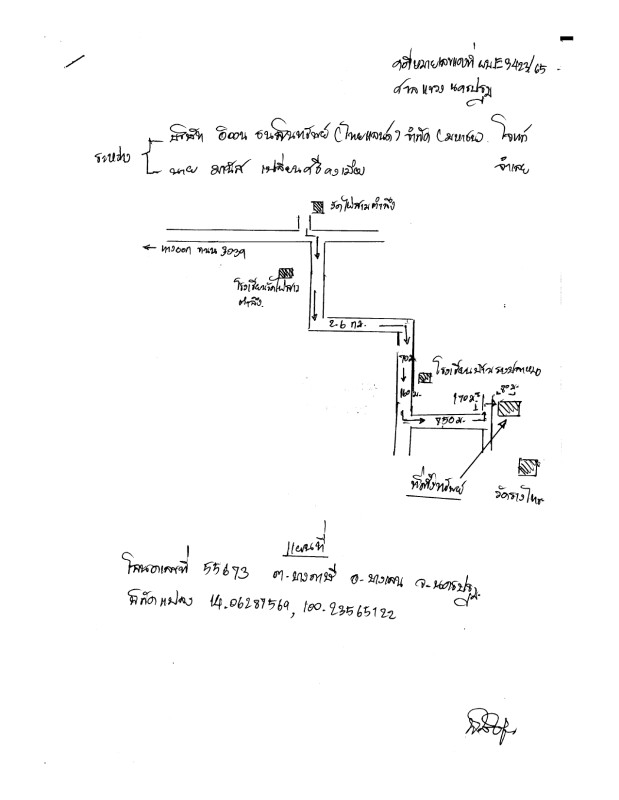 คดีหมายเลขแดงที่ ผบE3423/65
ศาลแขวงนครปฐม
ระหว่าง
บริษัท อิออน ธนสินทรัพย์ (ไทยแลนด์) จำกัด (มหาชน) โจทก์
นาย มานัส เปลี่ยนศรีดงเมือง จำเลย
วัดไผ่สามตำลึง
← ทางออก ถนน 3039
โรงเรียนวัดไผ่สาม
ตำลึง
2.6 กม.
70ม.
โรงเรียนบ้านรางปลาหมอ
160ม.
170ม.
80ม.
850ม.
ที่ตั้งทรัพย์
วัดราง
แผนที่
โฉนดเลขที่ 55673 ต.บางภาษี อ.บางเลน จ.นครปฐม
พิกัดแปลง 14.06287569, 100.23565122